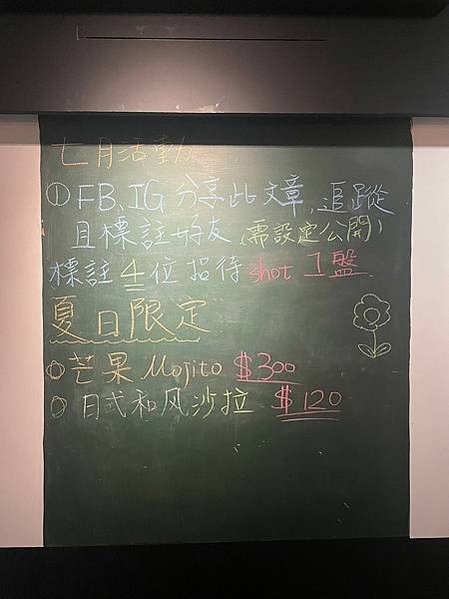 七月活動
①FB、IG 分享此文章, 追蹤
且標註好友(需設定公開)
標註 4 位 招待 shot 1盤
夏日限定
芒果 Mojito $300
日式和风沙拉 $120